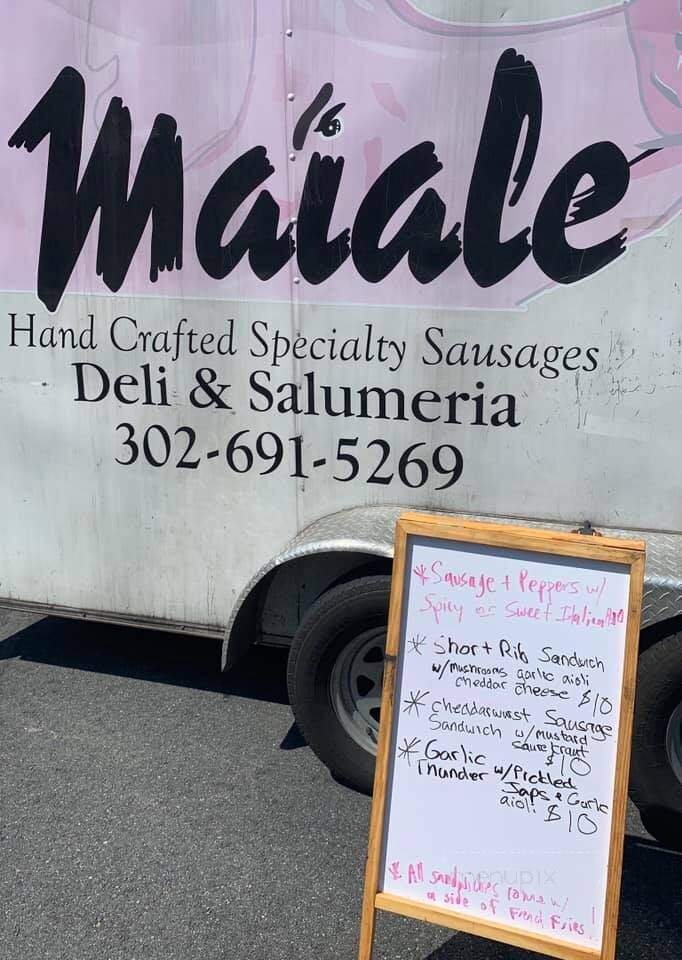 Maiale
Hand Crafted Specialty Sausages
Deli & Salumeria
302-691-5269
* Sausage + Peppers w/
Spicy or Sweet Italian $10
* Short Rib Sandwich
w/mushrooms garlic aioli
cheddar cheese $10
* cheddarwurst Sausage
Sandwich w/mustard
sauerkraut
$10
* Garlic
Thunder w/Pickled
Japs + Garlic
aioli $10
menupix
* All sandwiches come w/
a side of French Fries